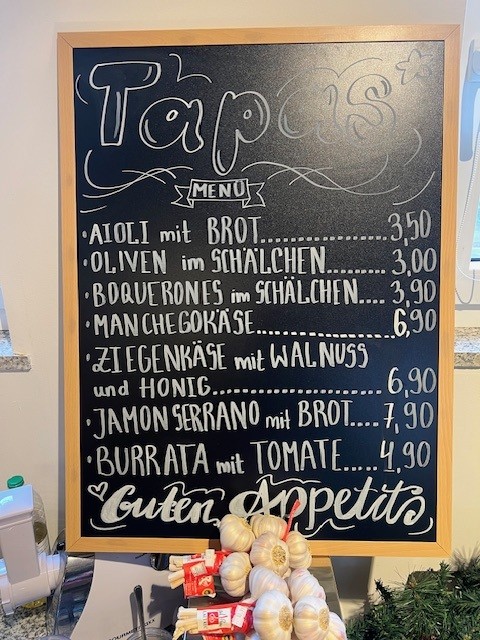 Tapas
MENÜ
·AIOLI mit BROT..................3,50
·OLIVEN im SCHÄLCHEN........3,00
·BOQUERONES im SCHÄLCHEN....3,90
·MANCHEGOKÄSE....................6,90
·ZIEGENKÄSE mit WALNUSS
und HONIG........................6,90
·JAMON SERRANO mit BROT....7,90
·BURRATA mit TOMATE.....4,90
Guten Appetit